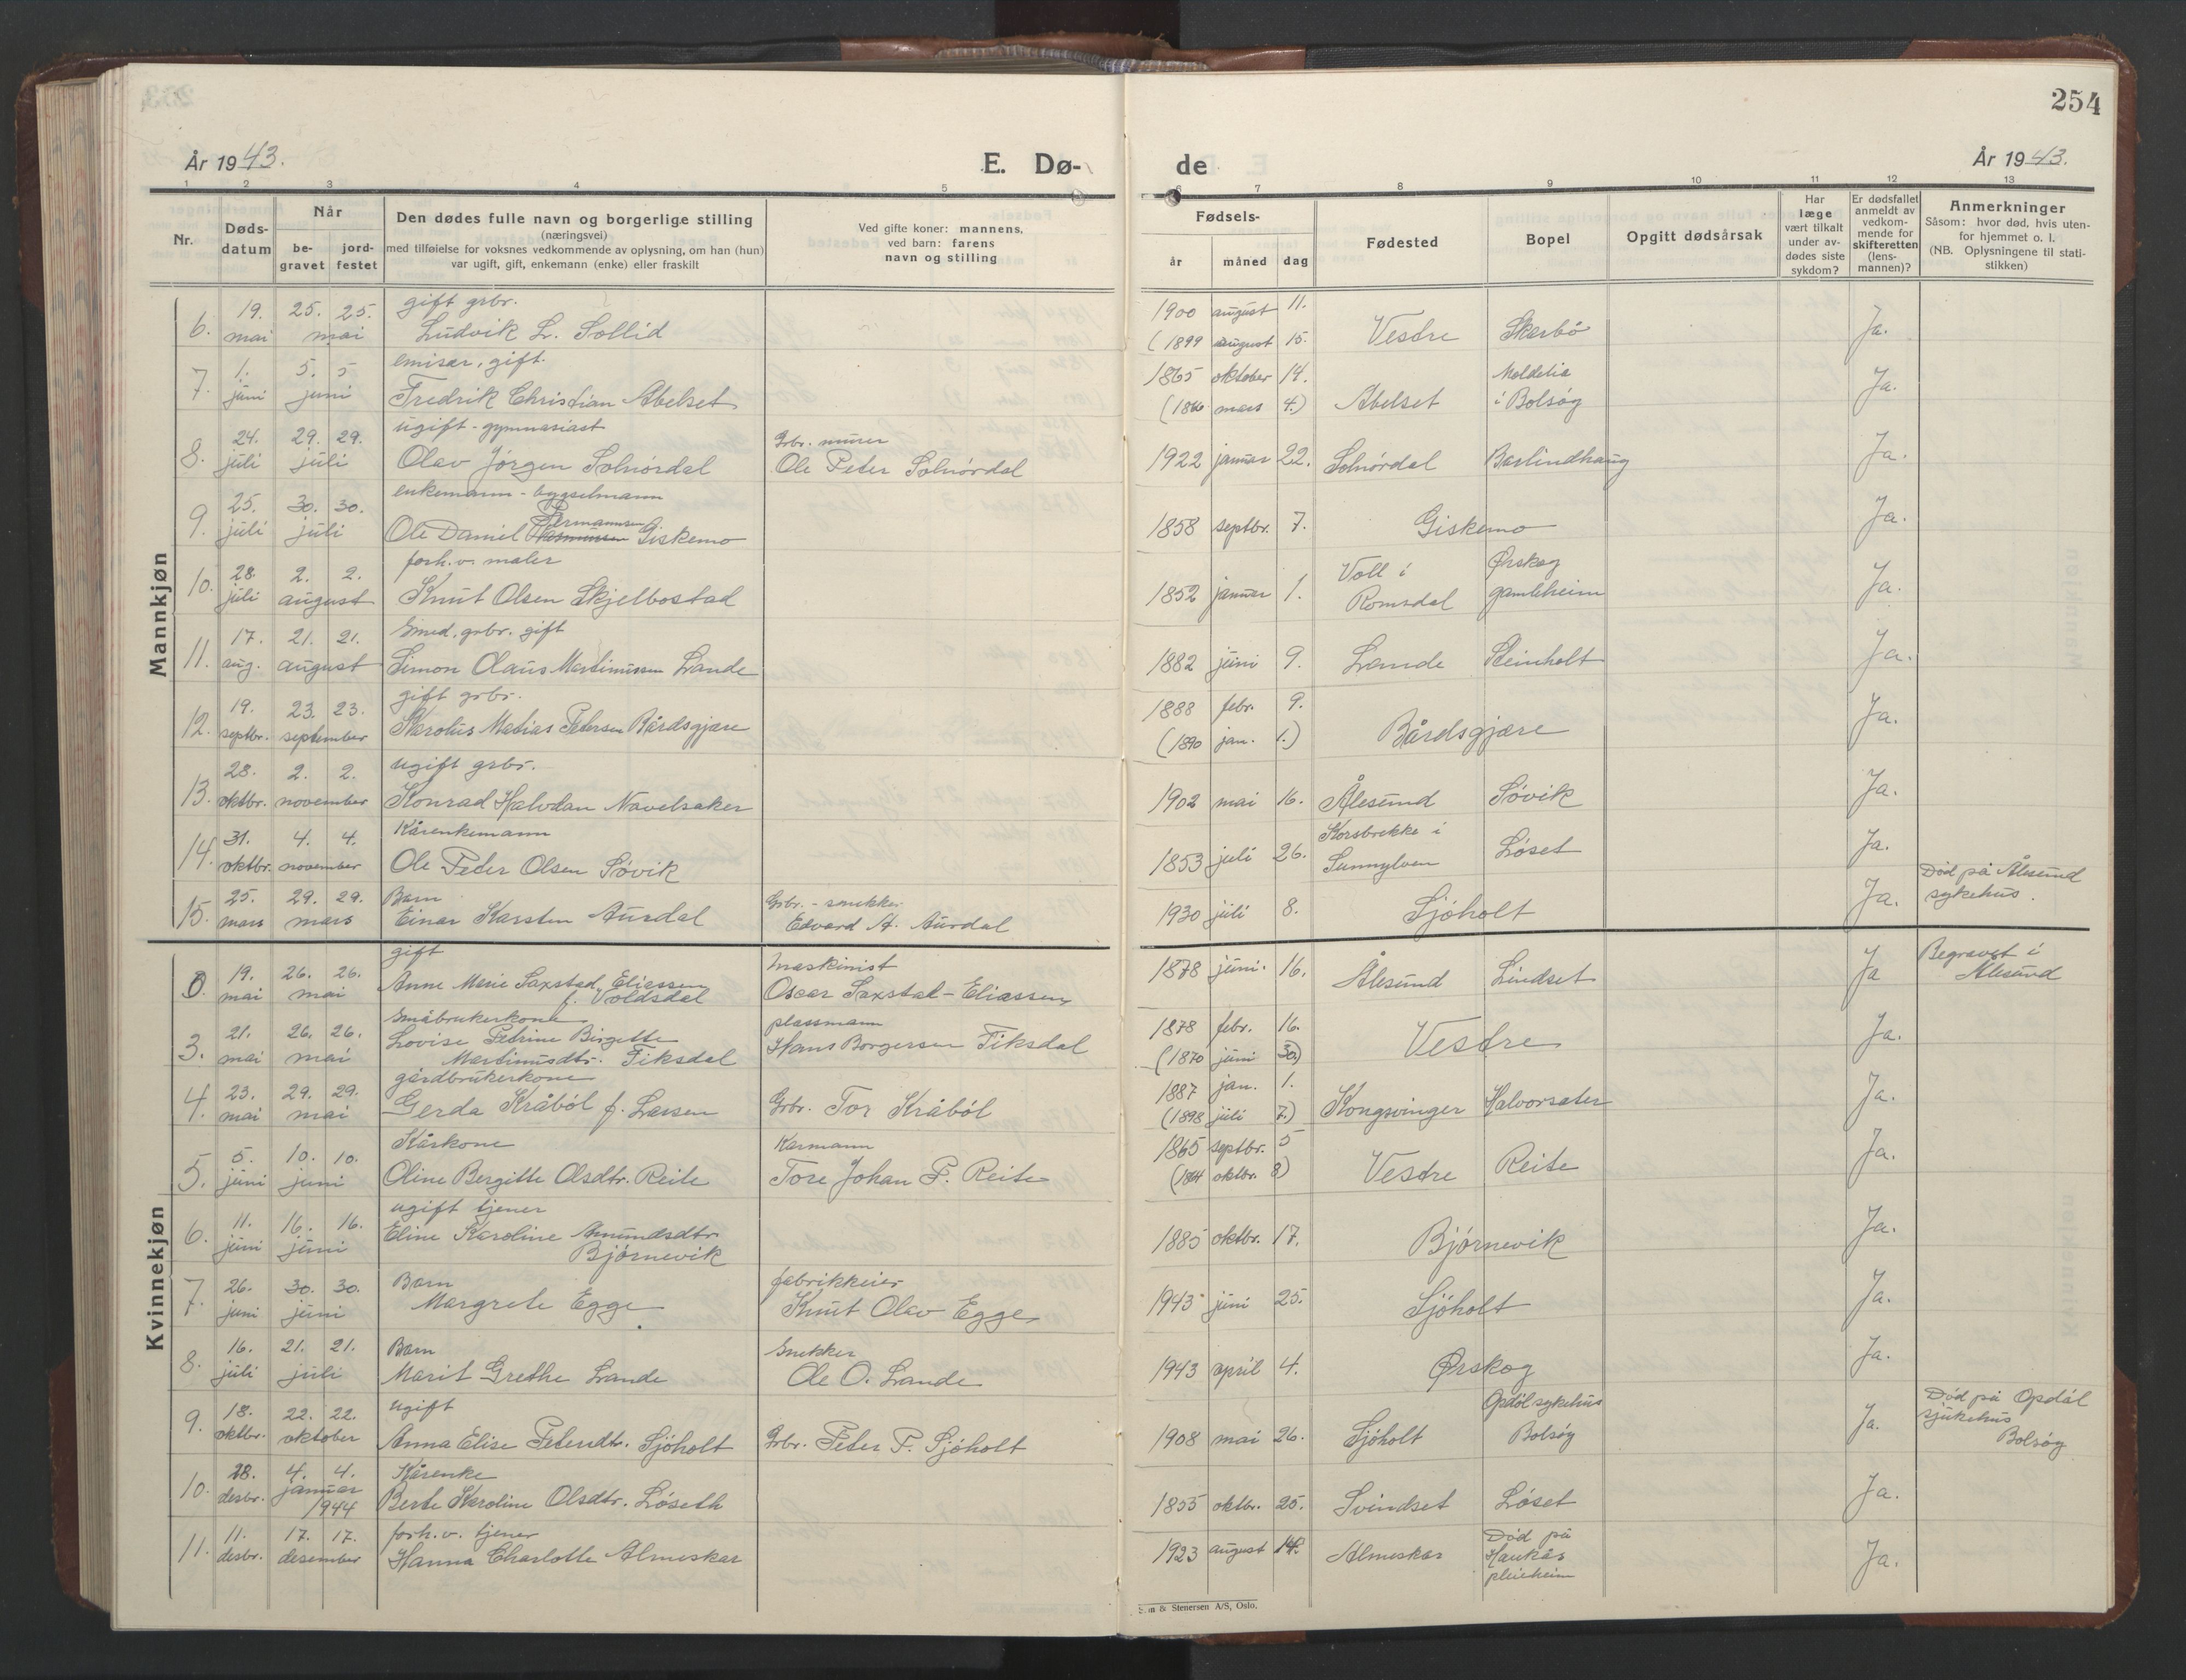 254
År 1943.
E. Dø-
de
År 1943.
1 2 3 4 5 6 7 8 9 10 11 12 13
Nr.
Døds-
datum
Når
be-
gravet
jord-
festet
Den dødes fulle navn og borgerlige stilling
(næringsvei)
med tilføielse for voksnes vedkommende av oplysning, om han (hun)
var ugift, gift, enkemann (enke) eller fraskilt
Ved gifte koner: mannens,
ved barn: farens
navn og stilling
Fødsels-
år måned dag
Fødested
Bopel
Opgitt dødsårsak
Har
læge
vært tilkalt
under av-
dødes siste
sykdom?
Er dødsfallet
anmeldt av
vedkom-
mende for
skifteretten
(lens-
mannen)?
Anmerkninger
Såsom: hvor død, hvis uten-
for hjemmet o. l.
(NB. Oplysningene til stati-
stikken)
Mannkjøn
19. 25. 25. gift grbr. 1900 august 11.
6. mai mai Ludvik L. Sollid (1899 august 15. Vestre Skarbø Ja.
1. 5. 5 emisær, gift. 1865 oktober 14. Moldelia
7. juni juni Fredrik Christian Abelset (1866 mars 4.) Abelset i Bolsøy Ja.
24. 29. 29. ugift - gymnasiast Grbr. murer
8. juli juli Olav Jørgen Solnørdal Ole Peter Solnørdal 1922 januar 22. Solnørdal Barlindhaug Ja.
25. 30. 30. enkemann - bygselmann
Hermannsen
9. juli juli Ole Daniel Giskemo 1858 septbr. 7. Giskemo Ja.
28. 2. 2. forh.v. maler Voll i Ørskog
10. juli august Knut Olsen Skjelbostad 1852 januar 1. Romsdal gamleheim Ja.
17. 21. 21. Smed, grbr. gift
11. aug. august Simon Olaus Martinussen Lande 1882 juni 9. Lande Steinholt Ja.
19. 23. 23. gift grbr. 1888 febr. 9.
12. septbr. september Karolus Matias Petersen Bårdsgjære (1890 jan. 1.) Bårdsgjære Ja.
28. 2. 2. ugift grbr.
13. oktbr. november Konrad Halvdan Navelsaker 1902 mai 16. Ålesund Søvik Ja.
31. 4. 4. Kårenkemann Korsbrekke i
14. oktbr. november Ole Peter Olsen Søvik 1853 juli 26. Sunnylven Løset Ja.
25. 29. 29. Barn Grbr. - snekker Død på Ålesund
15. mars mars Einar Karsten Aurdal Edvard A. Aurdal 1930 juli 8. Sjøholt Ja. sykehus.
Kvinnekjøn
gift
19. 26. 26. Anne Marie Saxstad, Eliassen maskinist Begravet i
0. mai mai f. Voldsdal Oscar Saxstad-Eliassen 1878 juni. 16. Ålesund Lindset Ja Ålesund
Småbrukerkone
21. 26. 26. Lovise Petrine Birgitte plassmann 1878 febr. 16.
3. mai mai Martinusdtr. Fiksdal Hans Borgersen Fiksdal (1870 juni 30) Vestre Ja.
23. 29. 29. gårdbrukerkone 1887 jan. 1.
4. mai mai Gerda Kråbøl f. Larsen Grbr. Tor Kråbøl (1898 juli 7.) Kongsvinger Halvorsæter Ja.
5. 10. 10. Kårkone Kårmann 1865 septbr. 5
5. juni juni Oline Bergitte Olsdtr. Reite Tore Johan P. Reite (1864 oktbr. 8) Vestre Reite Ja.
11. 16. 16. ugift tjener
6. juni juni Eline Karoline Amundsdtr. 1885 oktbr. 17. Bjørnevik Ja.
Bjørnevik
26. 30. 30. Barn fabrikkeier
7. juni juni Margrete Egge Knut Olav Egge 1943 juni 25. Sjøholt Ja.
16. 21. 21. Barn Snekker
8. juli juli Marit Grethe Lande Ole O. Lande 1943 april 4. Ørskog Ja.
18. 22. 22. ugift Opdøl sykehus Død på Opdøl
9. oktbr. oktober Anna Elise Petersdtr. Sjøholt Grbr. Peter P. Sjøholt 1908 mai 26. Sjøholt Bolsøy Ja. sjukehus
Bolsøy
28. 4. 4. Kårenke
10. desbr. januar Berte Karoline Olsdtr. Løseth 1855 oktbr. 25. Svindset Løset Ja.
1944
11. 17. 17. forh.v. tjener Død på
11. desbr. desember Hanna Charlotte Almeskar 1923 august 14. Almeskar Haukås Ja.
pleieheim
& Stenersen A/S, Oslo.